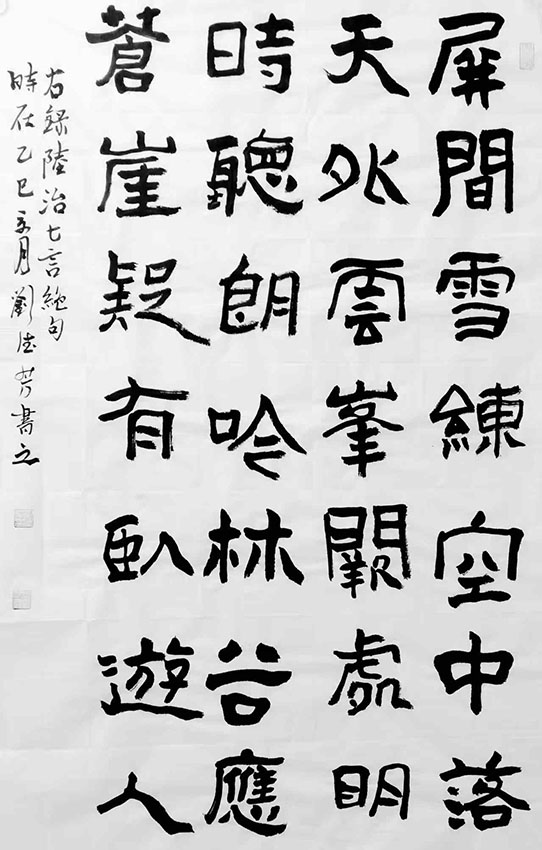 屏間雪練空中落
天外雲峯闕處明
時聽朗吟林谷應
蒼崖疑有臥遊人
右錄陸治七言絕句
時在乙巳亥月劉佳芳書之